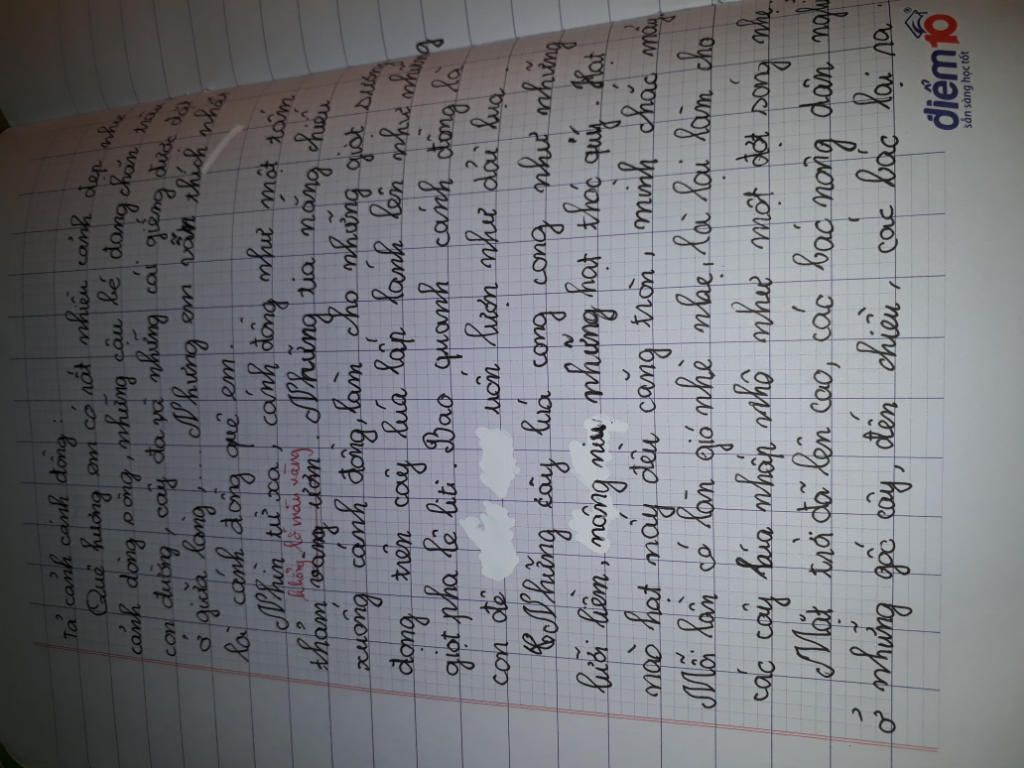 Tả cảnh cánh đồng:
Quê hương em có rất nhiều cảnh đẹp như
cánh đồng, sông, những cậu bé đang chăn trâu
con đường, cây đa và những cái giếng được đặt
ở giữa làng,..... Nhưng em vẫn thích nhất
là cánh đồng quê em.
Nhìn từ xa, cánh đồng như một tấm
khổng lồ màu vàng
thảm vàng ươm. Những tia nắng chiếu
xuống cánh đồng, làm cho những giọt sương
đọng trên cây lúa lấp lánh lên như những
giọt pha lê li ti. Bao quanh cánh đồng là
con đê uốn lượn như dải lụa.
Những cây lúa cong cong như những
lưỡi liềm, nâng niu những hạt thóc quý. Hạt
nào hạt mấy đều căng tròn, mình chắc mẩy
Mỗi lần có làn gió nhè nhẹ, lài lại làm cho
các cây lúa nhấp nhô như một đợt sóng nhẹ
Mặt trời đã lên cao, các bác nông dân nghỉ
ở những gốc cây, đến chiều, các bác lại ra
điểm 10
sẵn sàng học tốt